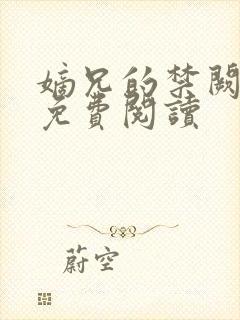 嫡兄的禁闕
免費閱讀
蔚空